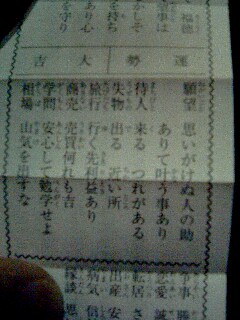 運勢
大吉
願望 思いがけぬ人の助
ありて叶う事あり
待人 来る つれがある
失物 出る 近い所
旅行 行く先利益あり
商売 売買何れも吉
学問 安心して勉学せよ
相場 山気を出すな
恋愛
転居
出産 安
病気
縁談 思
福徳
を持ち
あり心
を守り